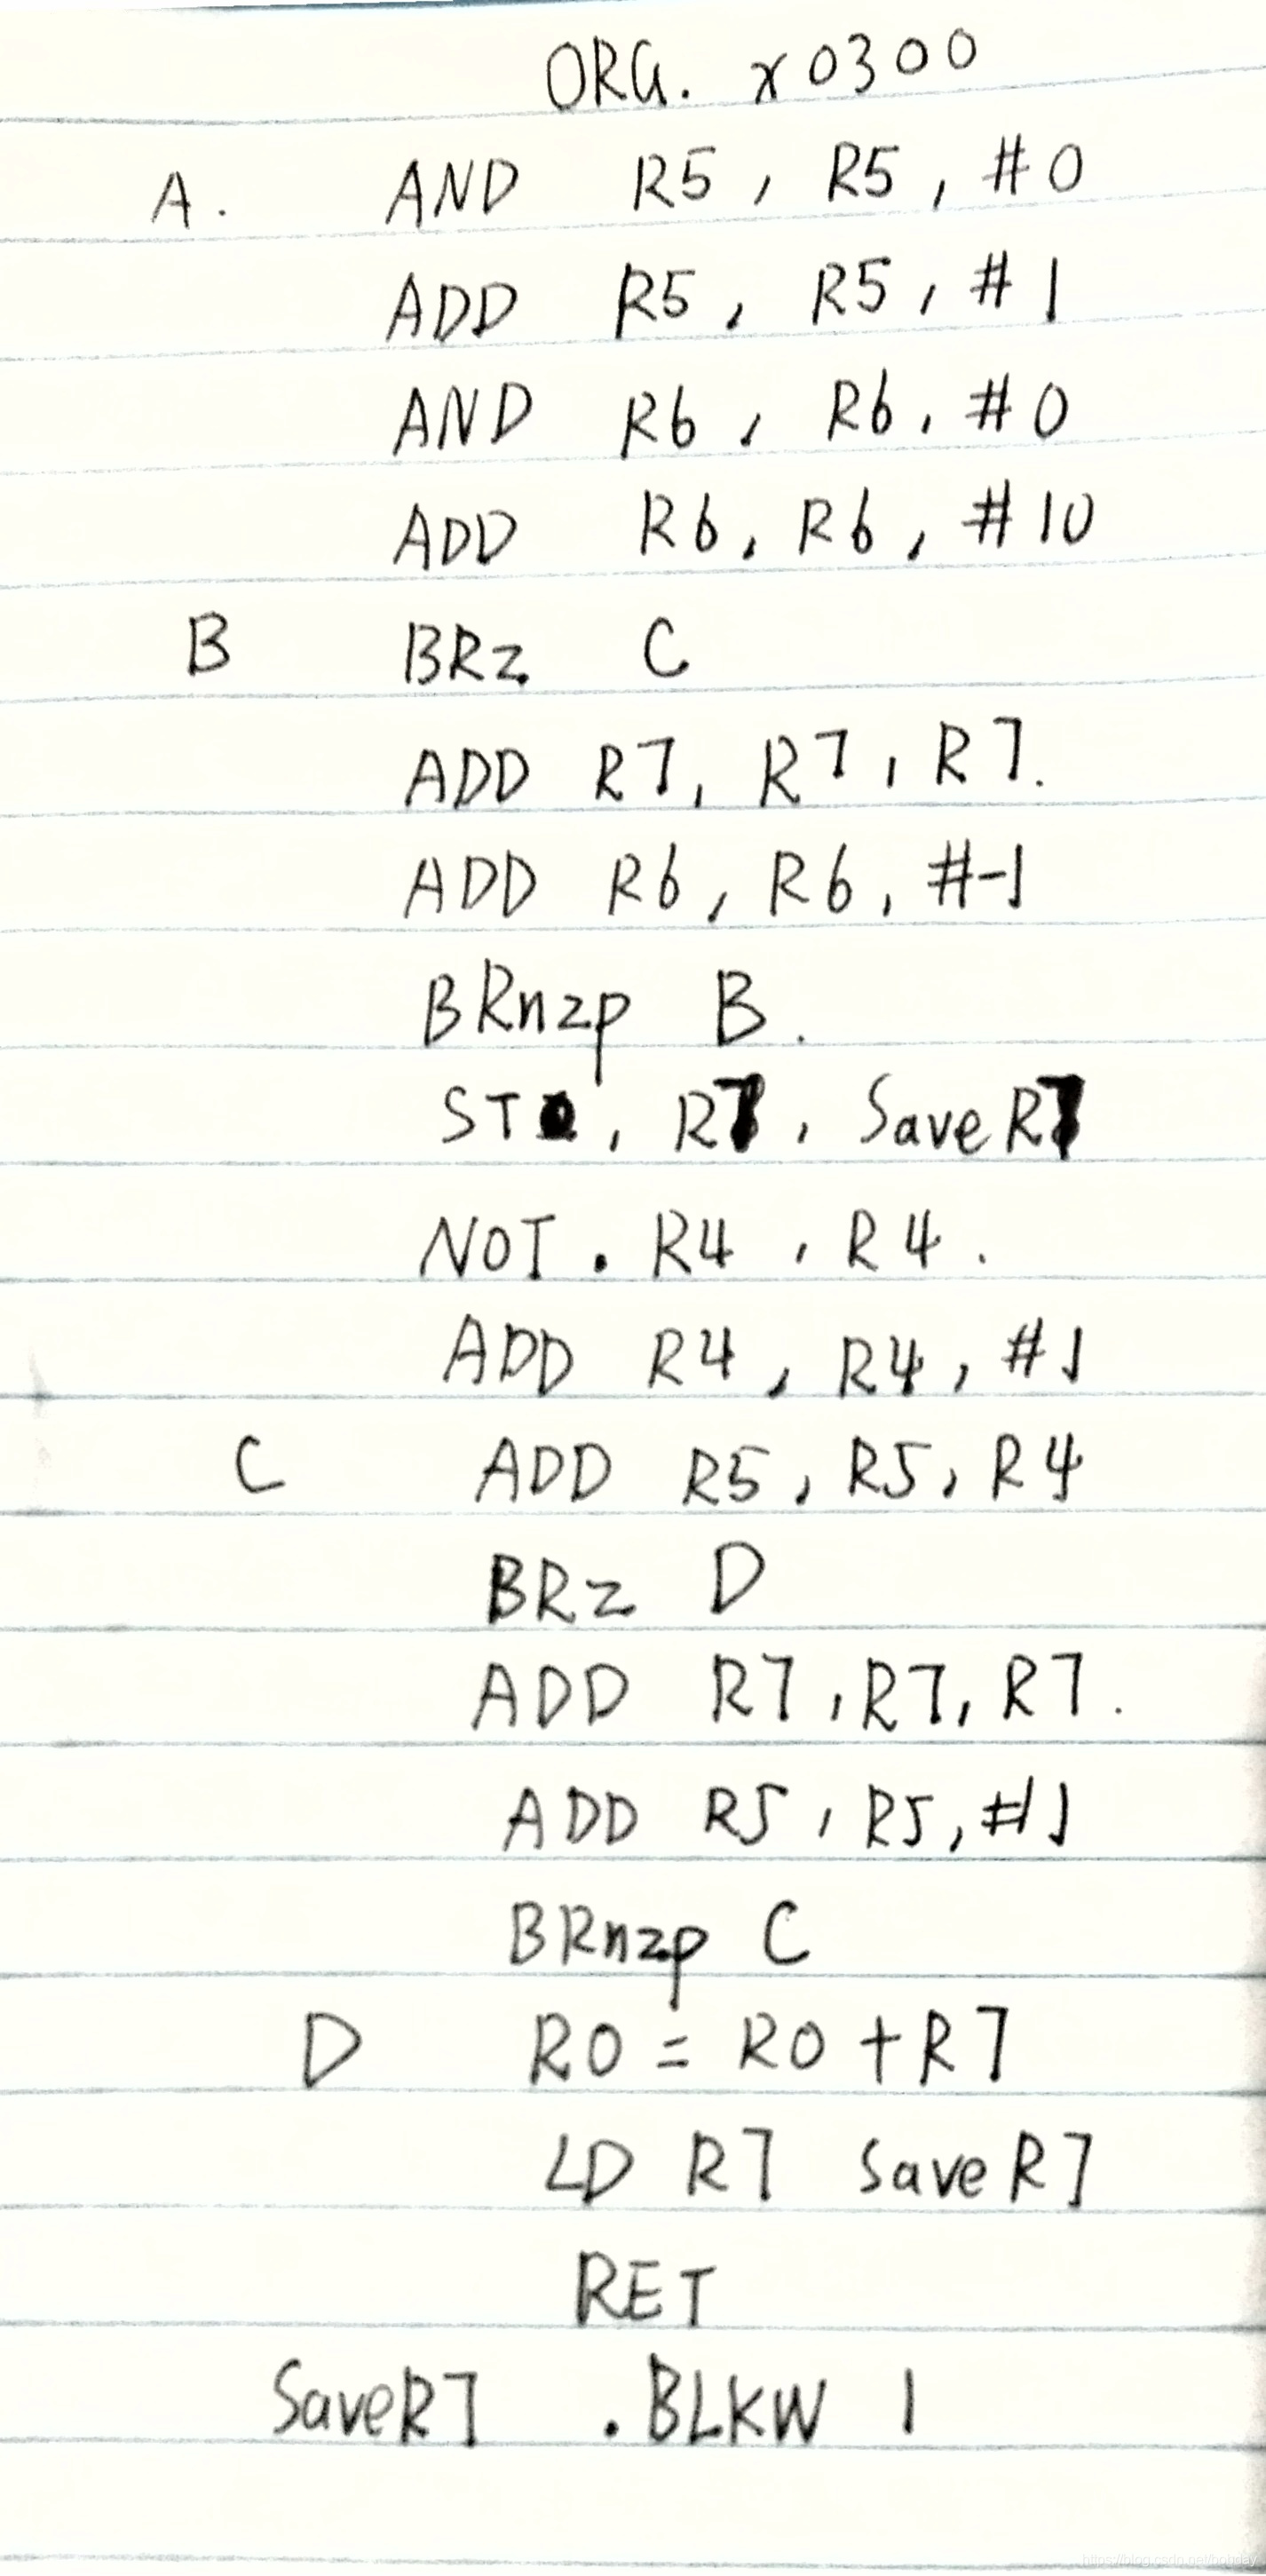 ORG. x0300
A. AND R5, R5, #0
ADD R5, R5, #1
AND R6, R6, #0
ADD R6, R6, #10
B BRz C
ADD R7, R7, R7.
ADD R6, R6, #-1
BRnzp B.
ST, R7, SaveR7
NOT. R4, R4.
ADD R4, R4, #1
C ADD R5, R5, R4
BRz D
ADD R7, R7, R7.
ADD R5, R5, #1
BRnzp C
D R0 = R0 + R7
LD R7 SaveR7
RET
SaveR7 .BLKW 1